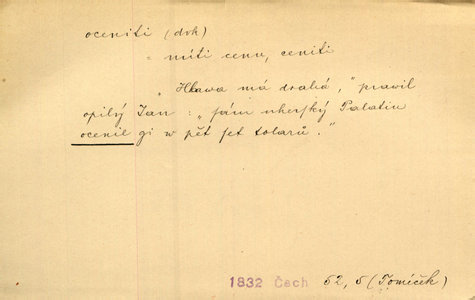 oceniti (dok)
= míti cenu, ceniti
„Hlawa má drahá," prawil
opilý Jan: „sám uherský Palatin
ocenil gi w pět set tolarů."
1832 Čech 52, 5 (Tomíček)